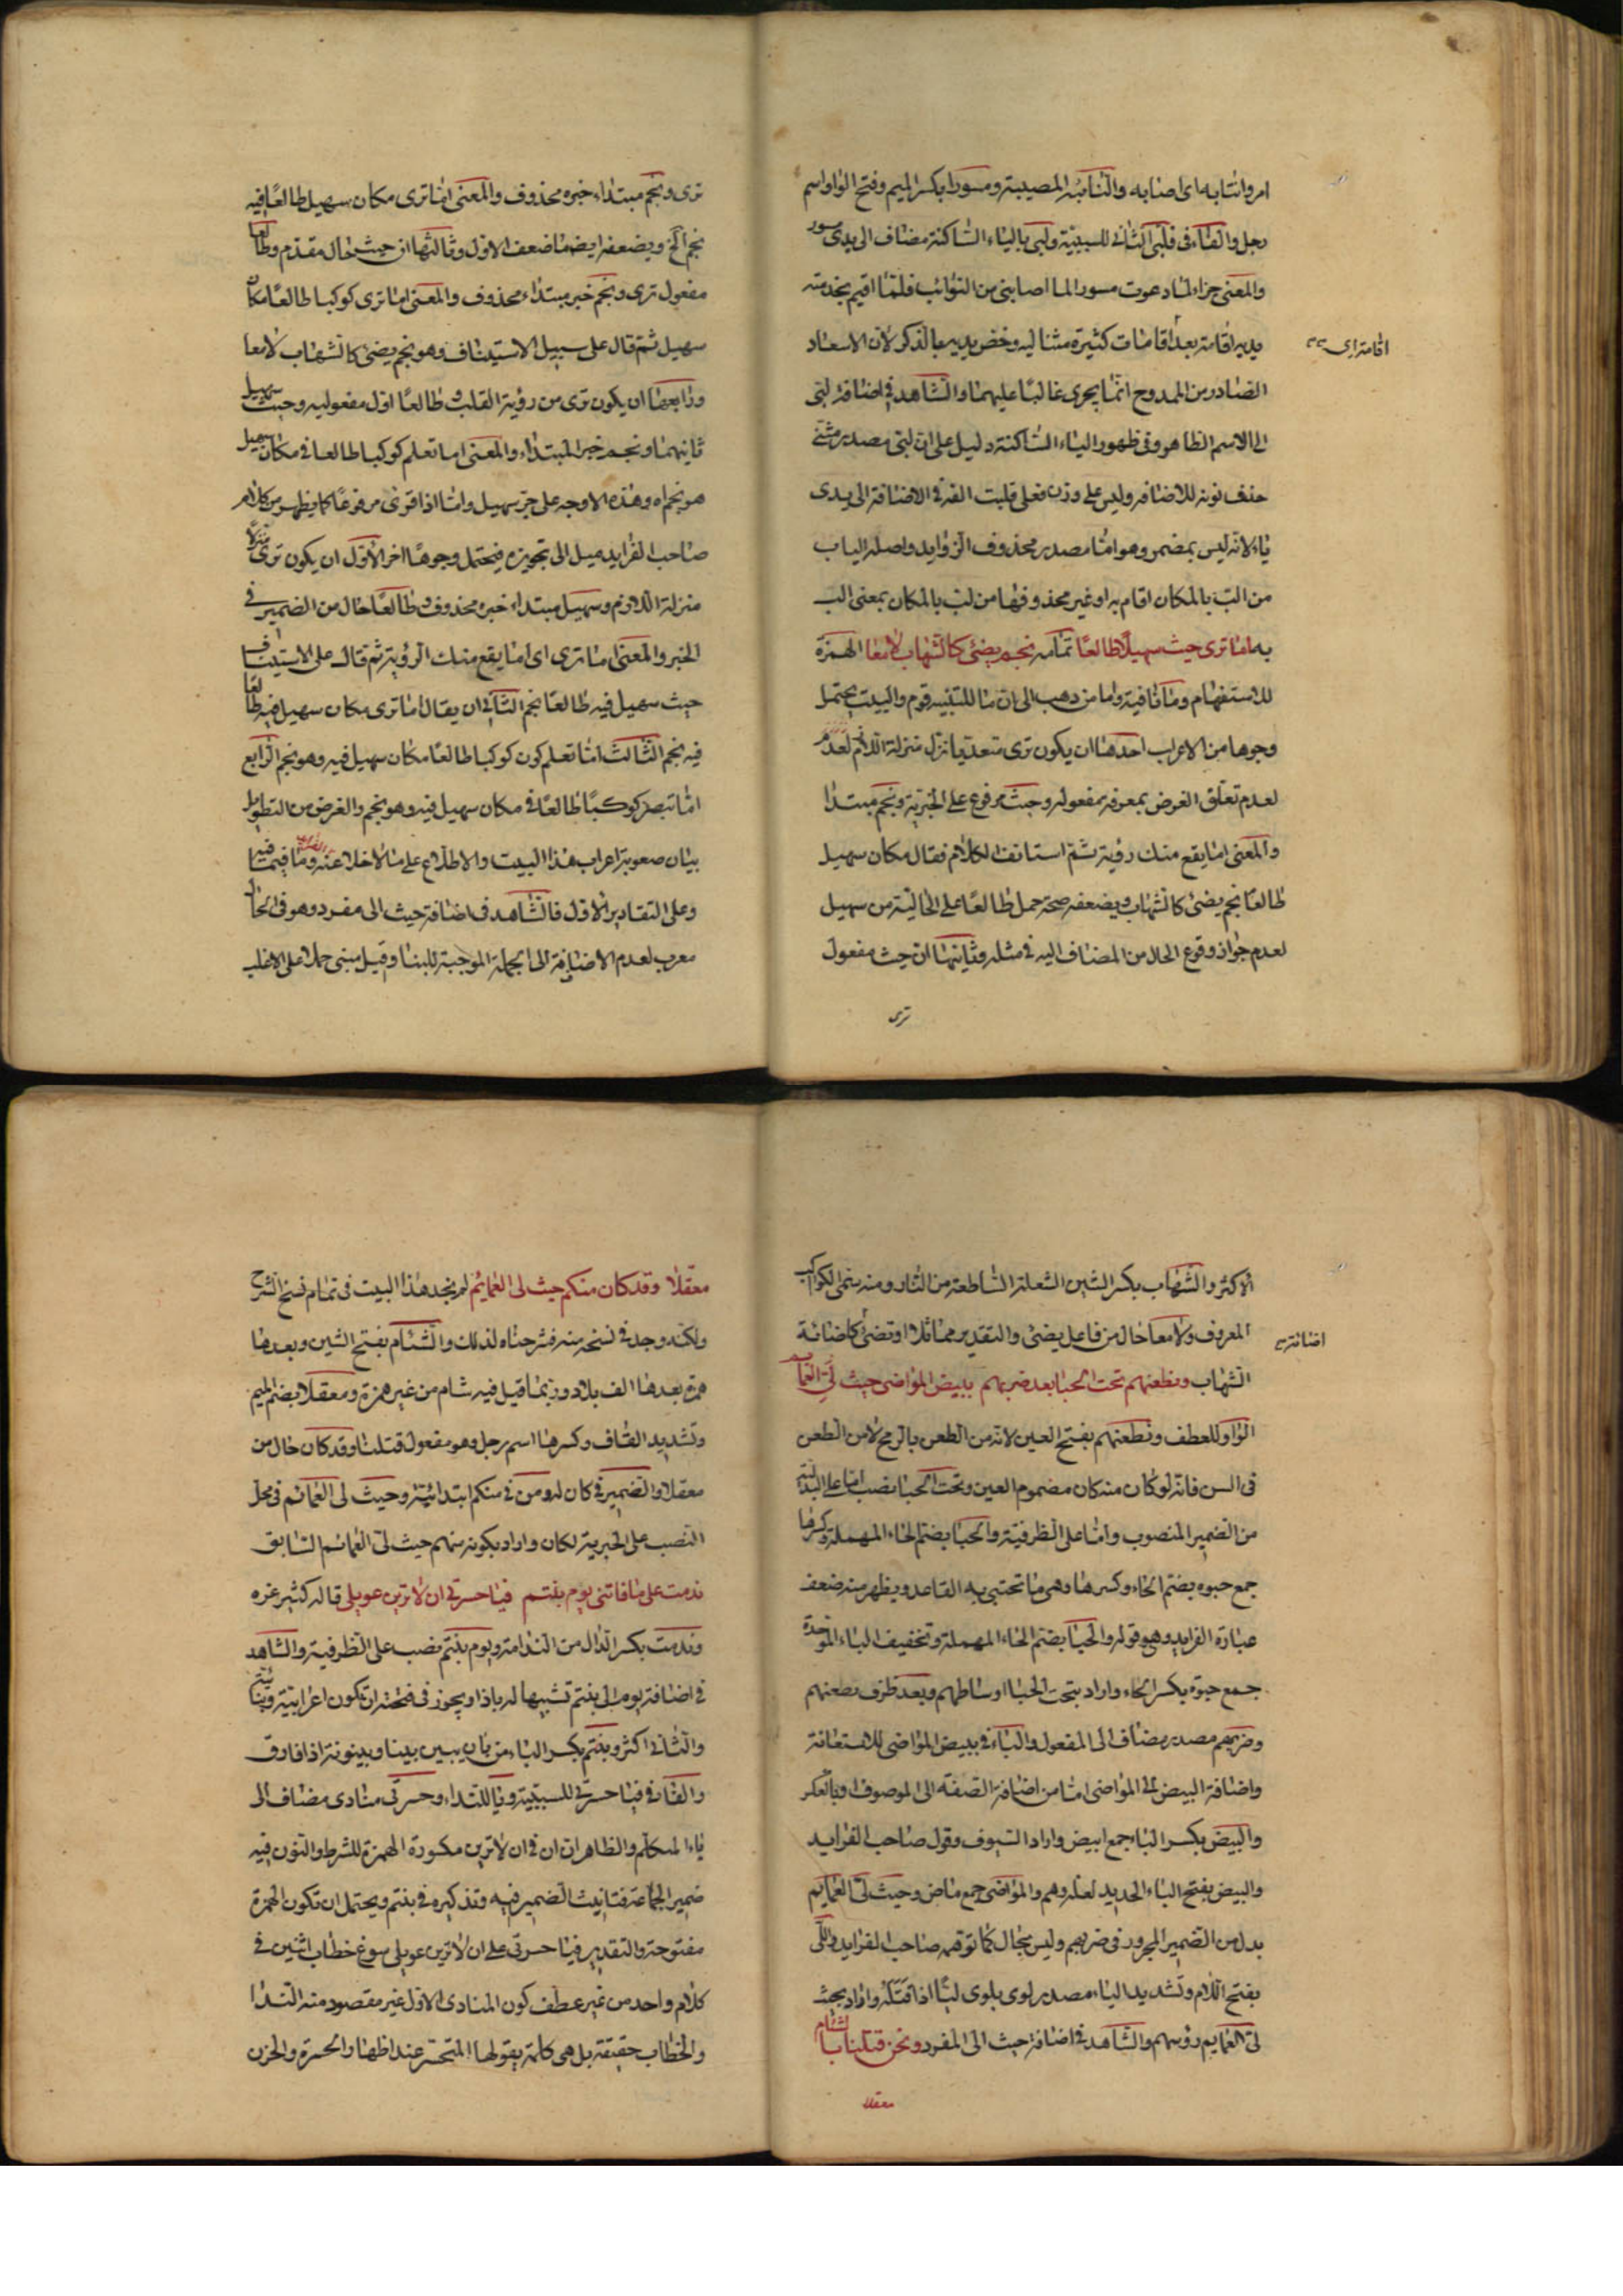 امر وانتابه اى اصابه والنائبة المصيبة ومسورا بكسر الميم وفتح الواو اسم
رجل والفاء فى فلبى الثانى للسببيّة ولبى بالياء الساكنة مضاف الى يدى مسور
والمعنى جزاء لما دعوت مسورا لما اصابنى من النوائب فلمّا اقيم بخدمته
يديه اقامة بعد اقامات كثيرة مثنا ليه وخص يديه معا بالذكر لان الاسعاد
اقامة اى
الصادر من الممدوح انّما يجرى غالبًا عليهما والشاهد فى اضافة لبّى
الى الاسم الظاهر وفى ظهور الياء الساكنة دليل على انّ لبّى مصدر مثنّى
حذف نونه للاضافه وليس على وزن فعلى قلبت الفه فى الاضافة الى يدى
ياء لانه ليس بمضمر وهو امّا مصدر محذوف الزوايد واصله الباب
من الب بالمكان اقام به او غير محذوفها من لب بالمكان بمعنى الب
به اما ترى حيث سهيلًا طالعًا تمامه نجم يضئ كالشهاب لامعا الهمزة
للاستفهام وما نافية واما من ذهب الى انّ ما للتنبيه قوم والبيت يحتمل
وجوها من الاعراب احدها ان يكون ترى متعديا نزل منزلة اللازم لعدم
لعدم تعلّق الغرض بمعرفة مفعوله وحيث مرفوع على الخبريّة ونجم مبتدا
والمعنى اما يقع منك رؤية ثمّ استانف الكلام فقال مكان سهيل
طالعًا نجم يضئ كالشهاب ويضعفه صحة حمل طالعًا على الحالية من سهيل
لعدم جواز وقوع الحال من المضاف اليه فى مثله وثانيها ان حيث مفعول
ترى
ترى ونجم مبتداء خبره محذوف والمعنى امّا ترى مكان سهيل طالعًا فيه
نجم الخ ويضعفه ايضا ما ضعف الاول وثالثها ان حيث حال مقدّم وطالعا
مفعول ترى ونجم خبر مبتداء محذوف والمعنى اما ترى كوكبا طالعًا مكان
سهيل ثمّ قال على سبيل الاستيناف وهو نجم يضئ كالشهاب لامعا
ورابعها ان يكون ترى من رؤية القلب وطالعًا اوّل مفعوليه وحيث سهيل
ثانيهما ونجم خبر المبتداء والمعنى اما تعلم كوكبا طالعا فى مكان سهيل
هو نجم اه وهذه الاوجه على جرّ سهيل وامّا اذا قرئ مرفوعًا كما يظهر من كلام
صاحب الفرايد ميل الى تجويزه فيحتمل وجوهًا اخر الاوّل ان يكون ترى منزلًا
منزلة اللازم وسهيل مبتداء خبره محذوف وطالعًا حال من الضمير فى
الخبر والمعنى اما ترى اى اما يقع منك الرؤية ثم قال على الاستيناف
حيث سهيل فيه طالعًا نجم الثانى ان يقال اما ترى مكان سهيل فيه طالعًا
فيه نجم الثالث امّا تعلم كون كوكبا طالعًا مكان سهيل فيه وهو نجم الرابع
امّا تبصر كوكبًا طالعًا فى مكان سهيل فيه وهو نجم والغرض من التطويل
بيان صعوبة اعراب هذا البيت والاطلاع على ما لاخلا عنه وما فيهما فيه
وعلى التقادير الاول فالشاهد فى اضافة حيث الى مفرد وهو فى الحال
معرب لعدم الاضافة الى الجملة الموجبة للبناء وقيل مبنى حملا على الاغلب
الاكثر والشهاب بكسر الشين الشعلة الساطعة من النار ومنه يتمى الكواكب
المعروف ولامعا حال من فاعل يضئ والتقدير مماثلا او تضئ كاضائة
اضائة
الشهاب ونطعنهم تحت الحبا بعد ضربهم ببيض المواضى حيث لىّ العمايم
الواو للعطف ونطعنهم بفتح العين لانه من الطعن بالرمح لا من الطعن
فى السن فانّه لو كان منه كان مضموم العين وتحت الحبا نصب امّا على البدلية
من الضمير المنصوب وامّا على الظرفية والحبا بضم الحاء المهملة وكسرها
جمع حبوه بضم الحاء وكسرها وهى ما تحتبى به القاعد ويظهر منه ضعف
عبارة الفرايد وهى قوله والحبا بضم الحاء المهملة وتخفيف الباء الموحّدة
جمع حبوة بكسر الحاء واراد بتحت الحبا اوساطهم وبعد ظرف نطعنهم
وضربهم مصدر مضاف الى المفعول والباء فى ببيض المواضى للاستعانة
واضافة البيض الى المواضى امّا من اضافة الصفة الى الموصوف او بالعكس
والبيض بكسر الباء جمع ابيض واراد السيوف وقول صاحب الفرايد
والبيض بفتح الباء الحديد لعلّه وهم والمواضى جمع ماض وحيث لىّ العمايم
بدل من الضمير المجرور فى ضربهم وليس بحال كما توهّمه صاحب الفرايد واللىّ
بفتح اللام وتشديد الياء مصدر لوى يلوى ليًّا اذا فتله واراد بحيث
لىّ العمايم رؤسهم والشاهد فى اضافة حيث الى المفرد ونحن قتلنا بالشئام
معقلا
معقّلا وقد كان منكم حيث لى العمائم لم يجد هذا البيت فى تمام نسخ الشرح
ولكنه وجد فى نسخه منه فشرحناه لذلك والشئام بفتح الشين وبعدها
همزة بعدها الف بلاد وربّما قيل فيه شام من غير همزة ومعقلا بضم الميم
وتشديد القاف وكسرها اسم رجل وهو مفعول قتلنا وقد كان حال من
معقلا والضمير فى كان له ومن فى منكم ابتدائيّة وحيث لى العمائم فى محل
النصب على الخبرية لكان واراد بكونه منهم حيث لىّ العمائم السابق
ندمت على ما فاتنى يوم بنتم فيا حسرتى ان لا ترين عويلى قاله كثير عزه
وندمت بكسر الدال من الندامة ويوم بنتم نصب على الظرفية والشاهد
فى اضافة يوم الى بنتم تشبيها له باذ او يجوز فى فتحته ان تكون اعرابيّة وبنائيّة
والثانى اكثر وبنتم بكسر الباء من بان يبين بينا وبينونة اذا فارق
والفاء فى فيا حسرتى للسببيّة ويا للنداء وحسرتى منادى مضاف الى
ياء المتكلّم والظاهر ان ان فى ان لا ترين مكسورة الهمزة للشرط والنون فيه
ضمير الجماعة فتانيث الضمير فيه وتذكيره فى بنتم ويحتمل ان تكون الهمزة
مفتوحة والتقدير فيا حسرتى على ان لا ترين عويلى سوغ خطاب اثنين فى
كلام واحد من غير عطف كون المنادى الاول غير مقصود منه الندا
والخطاب حقيقة بل هى كلمة يقولها المتحسّر عند اظهار الحسرة والحزن